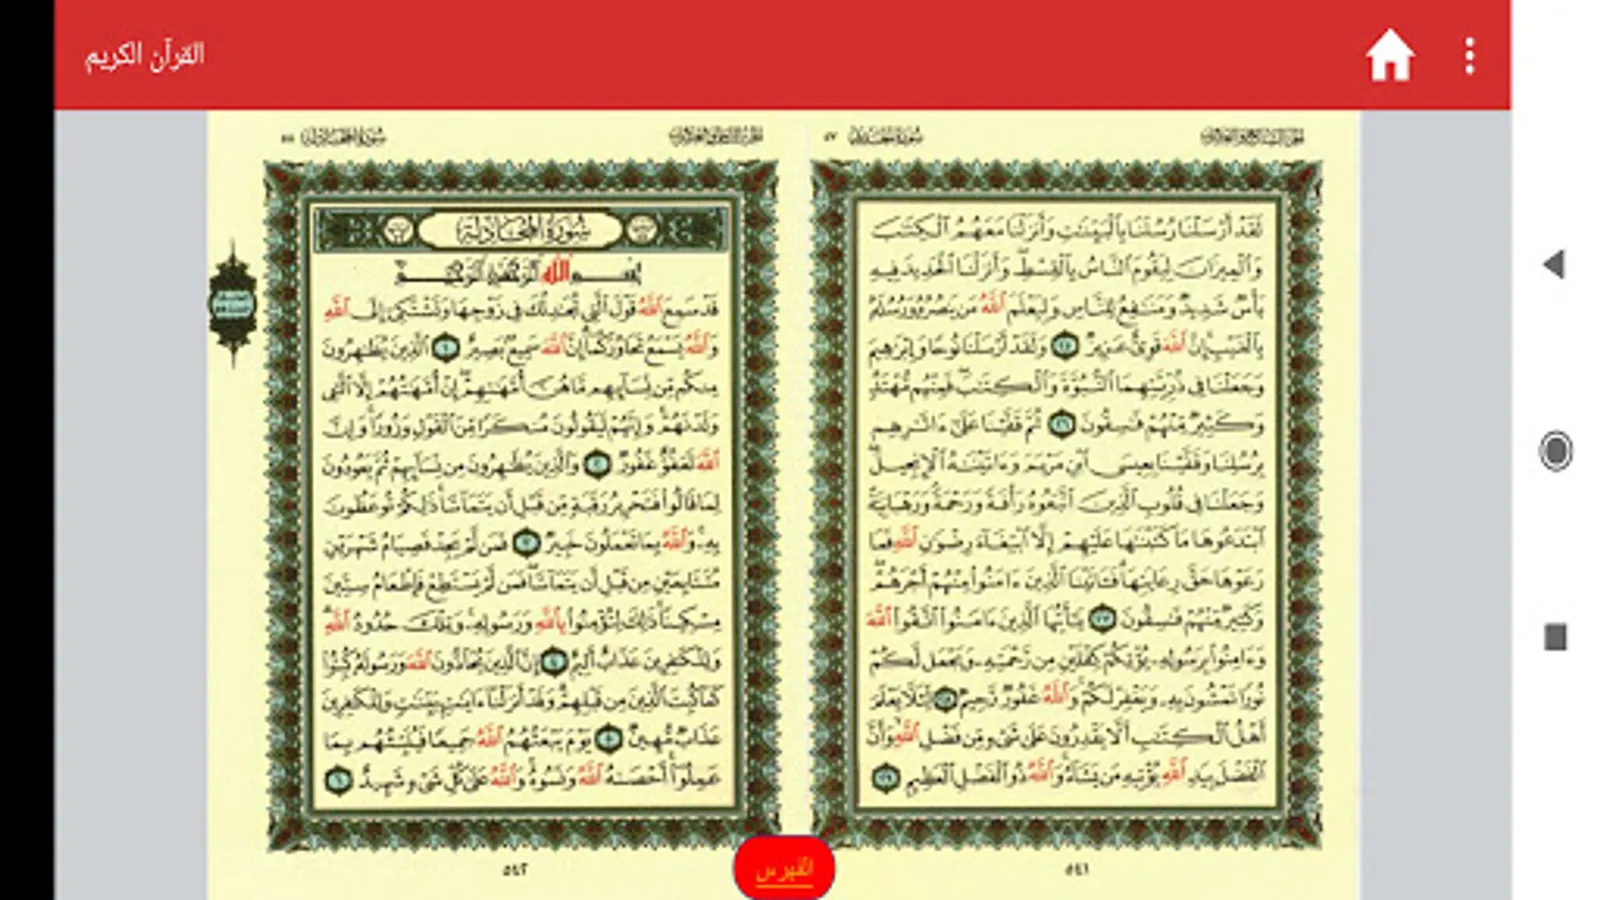 القرآن الكريم
الجزء السابع والعشرون
سورة الحديد ٥٧
لقد أرسلنا رسلنا بالبينت وأنزلنا معهم الكتب
والميزان ليقوم الناس بالقسط وأنزلنا الحديد فيه
بأس شديد ومنفع للناس وليعلم الله من ينصره ورسله
بالغيب إن الله قوى عزيز ٢٥ ولقد أرسلنا نوحا وإبرهيم
وجعلنا فى ذريتهما النبوة والكتب فمنهم مهتد
وكثير منهم فسقون ٢٦ ثم قفينا على ءاثرهم
برسلنا وقفينا بعيسى ابن مريم وءاتينه الإنجيل
وجعلنا فى قلوب الذين اتبعوه رأفة ورحمة ورهبانية
ابتدعوها ما كتبنها عليهم إلا ابتغاء رضون الله فما
رعوها حق رعايتها فءاتينا الذين ءامنوا منهم أجرهم
وكثير منهم فسقون ٢٧ يأيها الذين ءامنوا اتقوا الله
وءامنوا برسوله يؤتكم كفلين من رحمته ويجعل لكم
نورا تمشون به ويغفر لكم والله غفور رحيم ٢٨ لئلا يعلم
أهل الكتب ألا يقدرون على شىء من فضل الله وأن
الفضل بيد الله يؤتيه من يشاء والله ذو الفضل العظيم ٢٩
٥٤١
الجزء الثامن والعشرون
سورة المجادلة ٥٨
سورة المجادلة
بسم الله الرحمن الرحيم
قد سمع الله قول التى تجدلك فى زوجها وتشتكى إلى الله
والله يسمع تحاوركما إن الله سميع بصير ١ الذين يظهرون
منكم من نسائهم ما هن أمهتهم إن أمهتهم إلا الئى
ولدنهم وإنهم ليقولون منكرا من القول وزورا وإن
الله لعفو غفور ٢ والذين يظهرون من نسائهم ثم يعودون
لما قالوا فتحرير رقبة من قبل أن يتماسا ذلكم توعظون
به والله بما تعملون خبير ٣ فمن لم يجد فصيام شهرين
متتابعين من قبل أن يتماسا فمن لم يستطع فإطعام ستين
مسكينا ذلك لتؤمنوا بالله ورسوله وتلك حدود الله
وللكفرين عذاب أليم ٤ إن الذين يحادون الله ورسوله كبتوا
كما كبت الذين من قبلهم وقد أنزلنا ءايت بينت وللكفرين
عذاب مهين ٥ يوم يبعثهم الله جميعا فينبئهم بما
عملوا أحصىه الله ونسوه والله على كل شىء شهيد ٦
٥٤٢
الفهرس